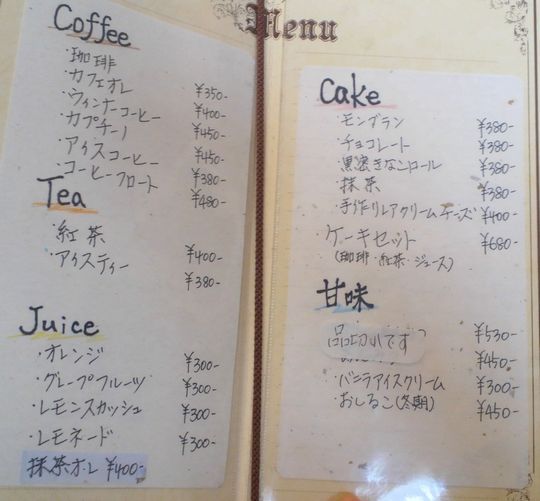 Menu
Coffee
・珈琲 ¥350-
・カフェオレ ¥400-
・ウィンナーコーヒー ¥450-
・カプチーノ ¥450-
・アイスコーヒー ¥380-
・コーヒーフロート ¥480-
Tea
・紅茶 ¥400-
・アイスティー ¥380-
Juice
・オレンジ ¥300-
・グレープフルーツ ¥300-
・レモンスカッシュ ¥300-
・レモネード ¥300-
抹茶オレ ¥400-
Cake
・モンブラン ¥380-
・チョコレート ¥380-
・黒磨きなこロール ¥380-
・抹茶 ¥380-
・手作りレアクリームチーズ ¥400-
ケーキセット ¥680-
(珈琲・紅茶・ジュース)
甘味
品切れです ¥530-
¥450-
・バニラアイスクリーム ¥300-
・おしるこ(冬期) ¥450-